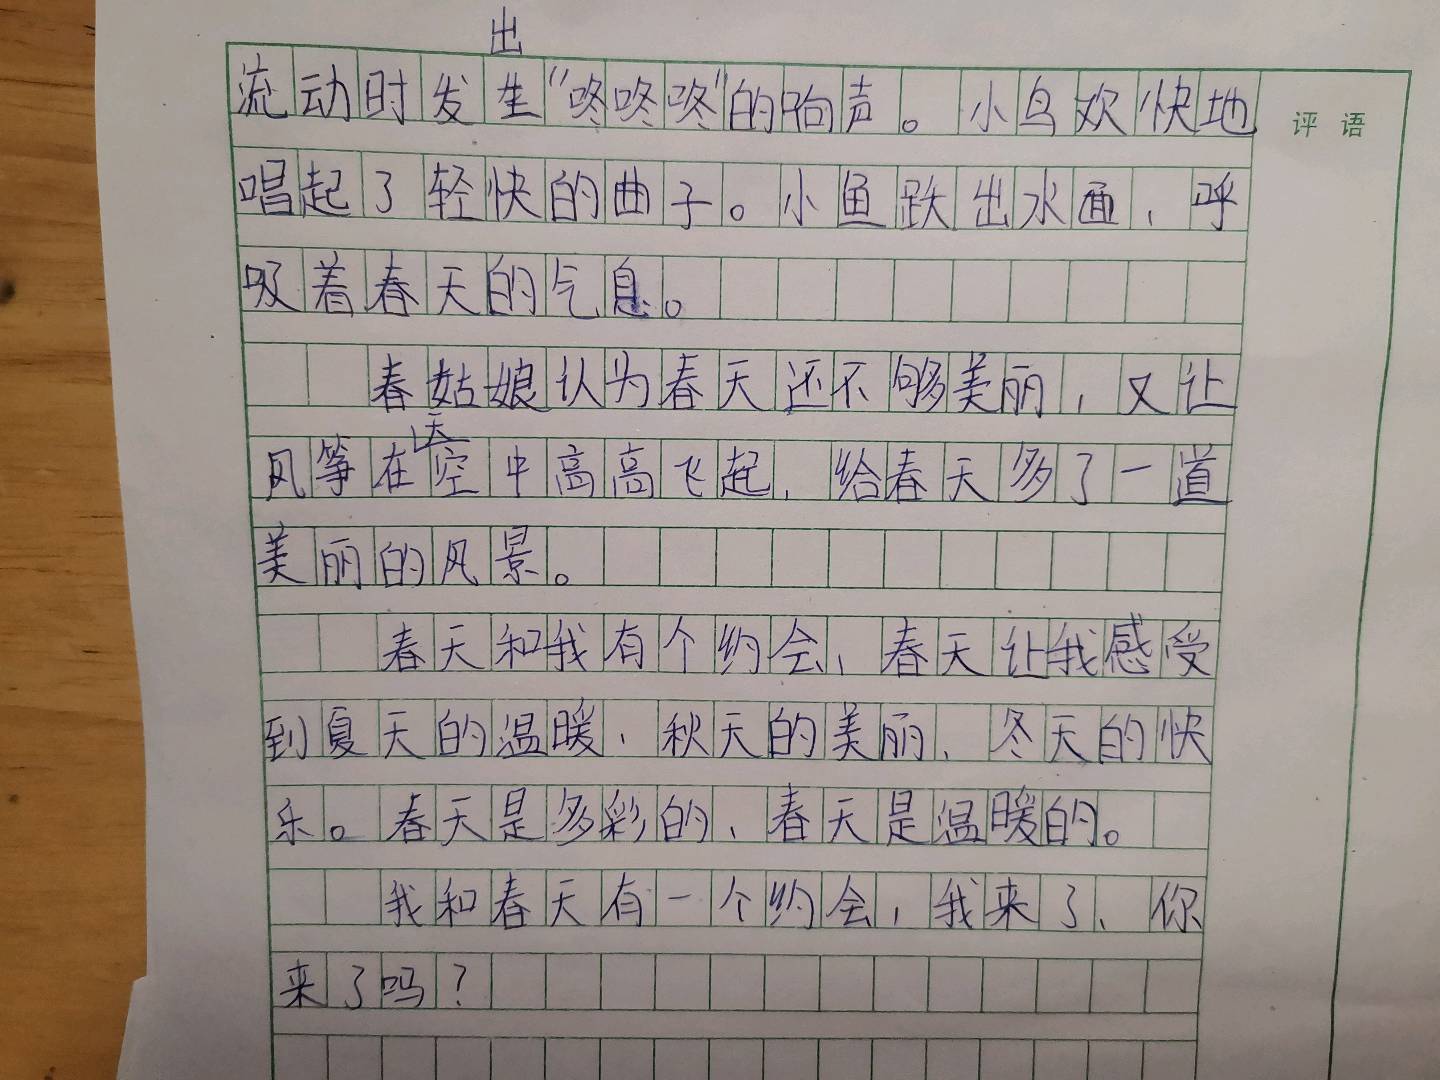 出
流动时发生“咚咚咚”的响声。小鸟欢快地
评语
唱起了轻快的曲子。小鱼跃出水面，呼
吸着春天的气息。
春姑娘认为春天还不够美丽，又让
天
风筝在空中高高飞起，给春天多了一道
美丽的风景。
春天和我有个约会，春天让我感受
到夏天的温暖、秋天的美丽、冬天的快
乐。春天是多彩的、春天是温暖的。
我和春天有一个约会，我来了、你
来了吗？